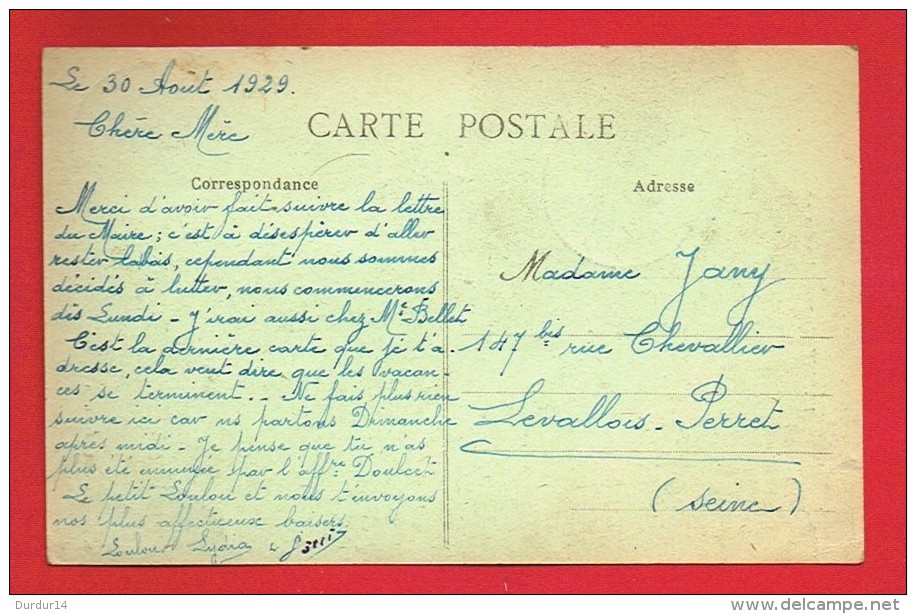 Le 30 Août 1929.
Chère Mère
CARTE POSTALE
Correspondance
Merci d'avoir fait suivre la lettre
du Maire; c'est à désespérer d'aller
rester labas, cependant nous sommes
décidés à lutter, nous commencerons
dès Lundi - J'irai aussi chez Mr Bellet
C'est la dernière carte que je t'a-
dresse, cela veut dire que les vacan-
ces se terminent. - Ne fais plus rien
suivre ici car ns partons Dimanche
après midi - Je pense que tu n'as
plus été ennuyée par l'affre Doulcet
Le petit Loulou et nous t'envoyons
nos plus affectueux baisers.
Loulou Lydia &
Adresse
Madame Jany
147 bis rue Chevallier
Levallois-Perret
(Seine)
Durdur14
www.delcampe.net